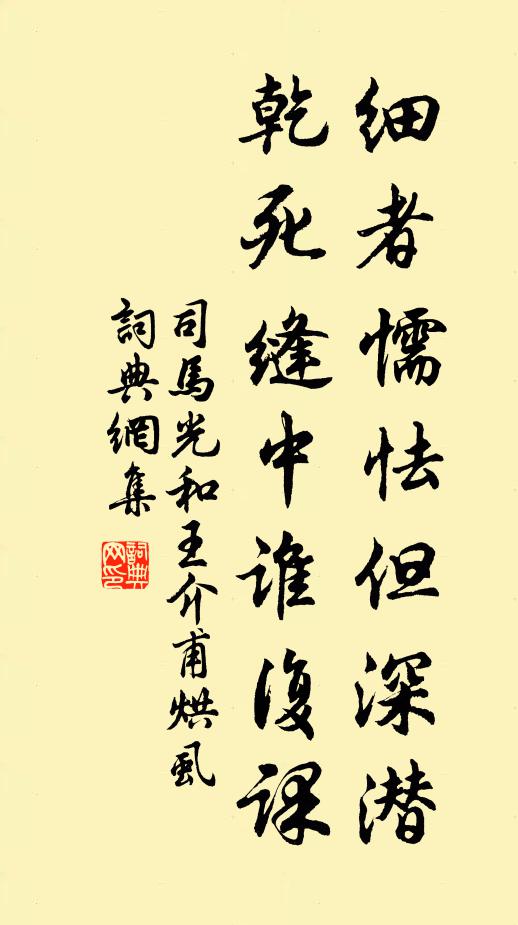 细者懦怯但深潜
乾死缝中谁復课
司馬光和王介甫烘虱
詞典網集
詞典网印